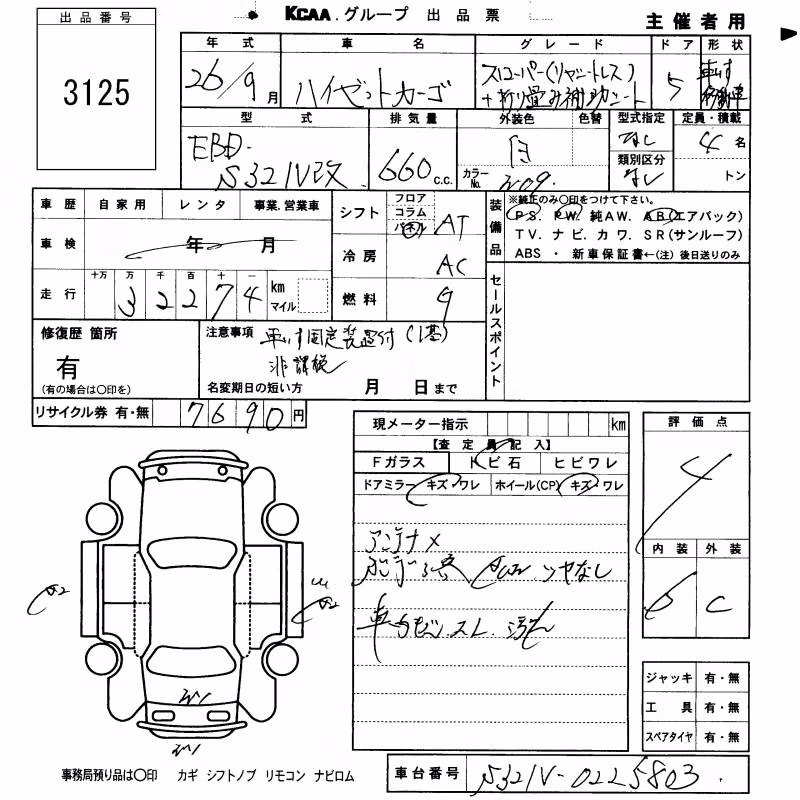 KCAA.グループ 出品票
主催者用
出品番号
3125
年式 車名 グレード ドア 形状
26/9月 ハイゼットカーゴ スローパー(リヤシートレス) 5 車いす
+折り畳み補助シート 移動車
型式 排気量 外装色 色替 型式指定 定員・積載
EBD- 白 なし 4名
S321V改 660c.c. カラーNo. W09 類別区分 なし トン
車歴 自家用 レンタ 事業.営業車
車検 年 月
シフト フロア コラム パネル AT
冷房 AC
燃料 ガ
装備品 ※純正のみ○印をつけて下さい。
PS. PW. 純AW. AB(エアバック)
TV. ナビ. カワ. SR(サンルーフ)
ABS ・ 新車保証書←(注)後日送りのみ
走行 十万 万 千 百 十 一 km マイル
3 2 2 7 4
セールスポイント
修復歴 箇所
有
(有の場合は○印を)
注意事項 車いす固定装置付(1基)
非課税
名変期日の短い方 月 日まで
リサイクル券 有・無 7690円
現メーター指示 km
【査定員記入】
Fガラス トビ石 ヒビワレ
ドアミラー キズ・ワレ ホイール(CP) キズ・ワレ
アンテナ×
ツヤなし
評価点
4
内装 外装
C
A2
A2
W1
W1
ジャッキ 有・無
工具 有・無
スペアタイヤ 有・無
事務局預り品は○印 カギ シフトノブ リモコン ナビロム
車台番号 S321V-0225803